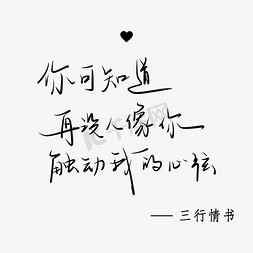 你可知道
再没人像你
触动我的心弦
——三行情书